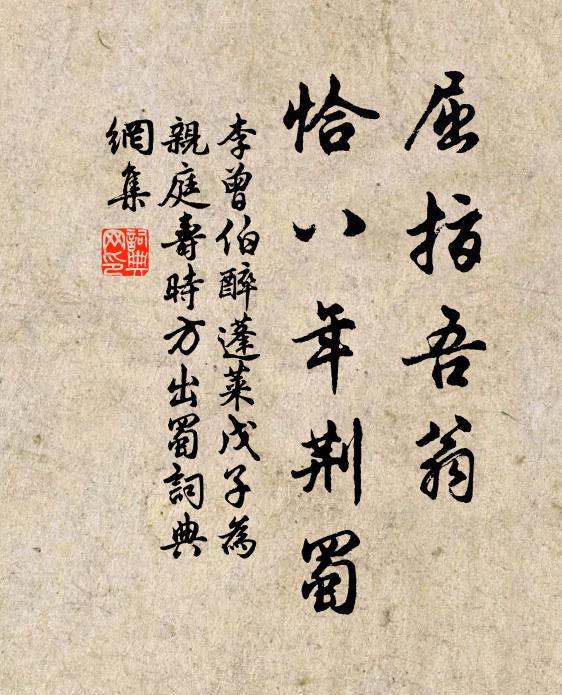 屈指吾翁
恰八年荆蜀
李曾伯醉蓬莱戊子為
親庭壽時方出蜀詞典
網集
詞典
网印